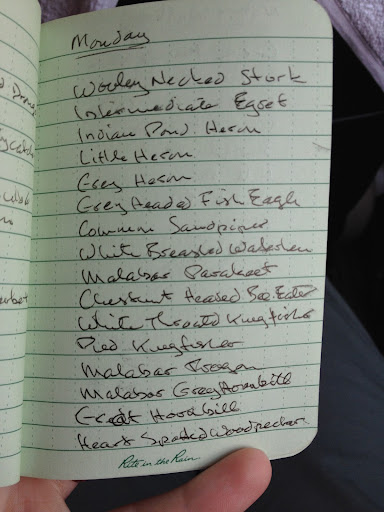 Monday
Wooley Necked Stork
Intermediate Egret
Indian Pond Heron
Little Heron
Grey Heron
Grey Headed Fish Eagle
Common Sandpiper
White Breasted Waterhen
Malabar Parakeet
Chestnut Headed Bee Eater
White Throated Kingfisher
Pied Kingfisher
Malabar Trogon
Malabar Grey Hornbill
Great Hornbill
Heart Spotted Woodpecker
Rite in the Rain